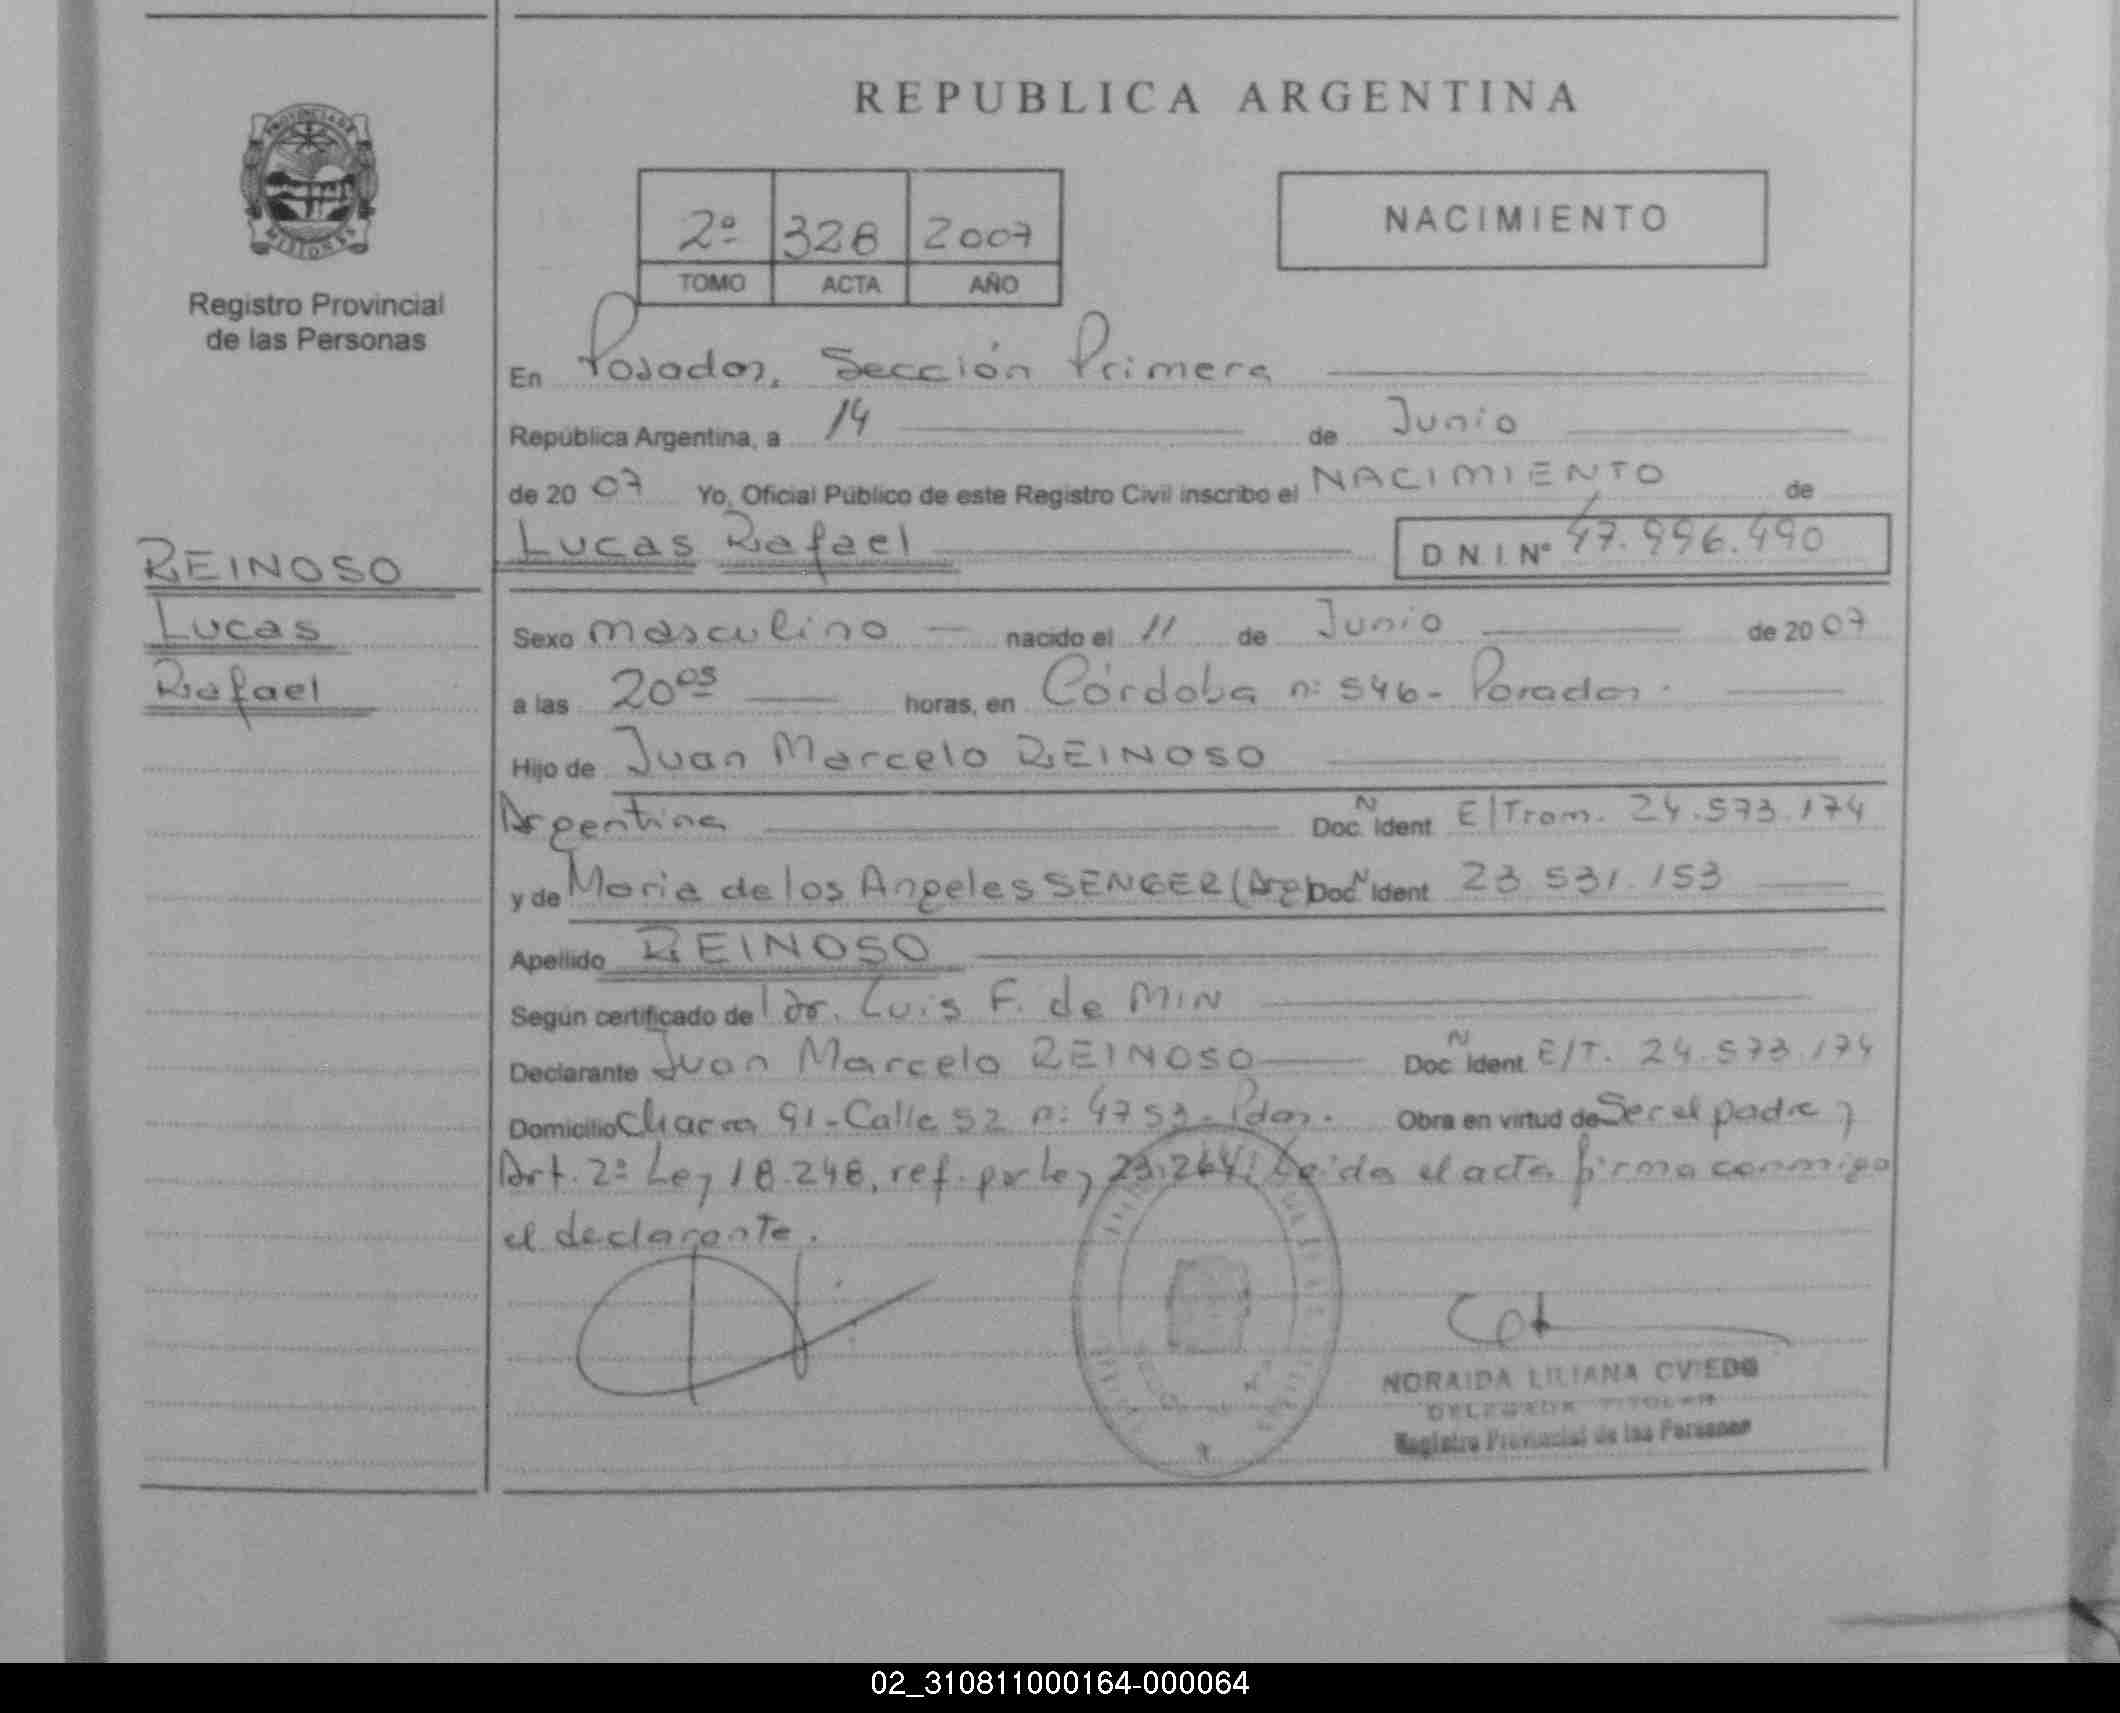 REPUBLICA ARGENTINA
PROVINCIA DE
MISIONES
Registro Provincial
de las Personas
2º 328 2007
TOMO ACTA AÑO
NACIMIENTO
En Posadas, Sección Primera
República Argentina, a 14 de Junio
de 20 07 Yo, Oficial Público de este Registro Civil inscribo el NACIMIENTO de
Lucas Rafael D N I Nº 47.996.490
REINOSO
Lucas
Rafael
Sexo masculino nacido el 11 de Junio de 20 07
a las 20 05 horas, en Córdoba nº 546 - Posadas.
Hijo de Juan Marcelo REINOSO
Argentina Doc. N Ident E/Tram. 24.573.174
y de Maria de los Angeles SENGER (Arg) Doc. N Ident 23 531.153
Apellido REINOSO
Según certificado del Dr. Luis F. de MIN
Declarante Juan Marcelo REINOSO Doc. N Ident E/T. 24.573.174
Domicilio Chacra 91 - Calle 52 nº 4753 - Pdas. Obra en virtud de Ser el padre y
Art. 2º Ley 18.248, ref. por Ley 23.264; Leida el acta firma conmigo
el declarante.
NORAIDA LILIANA OVIEDO
DELEGADA TITULAR
Registro Provincial de las Personas
02_310811000164-000064